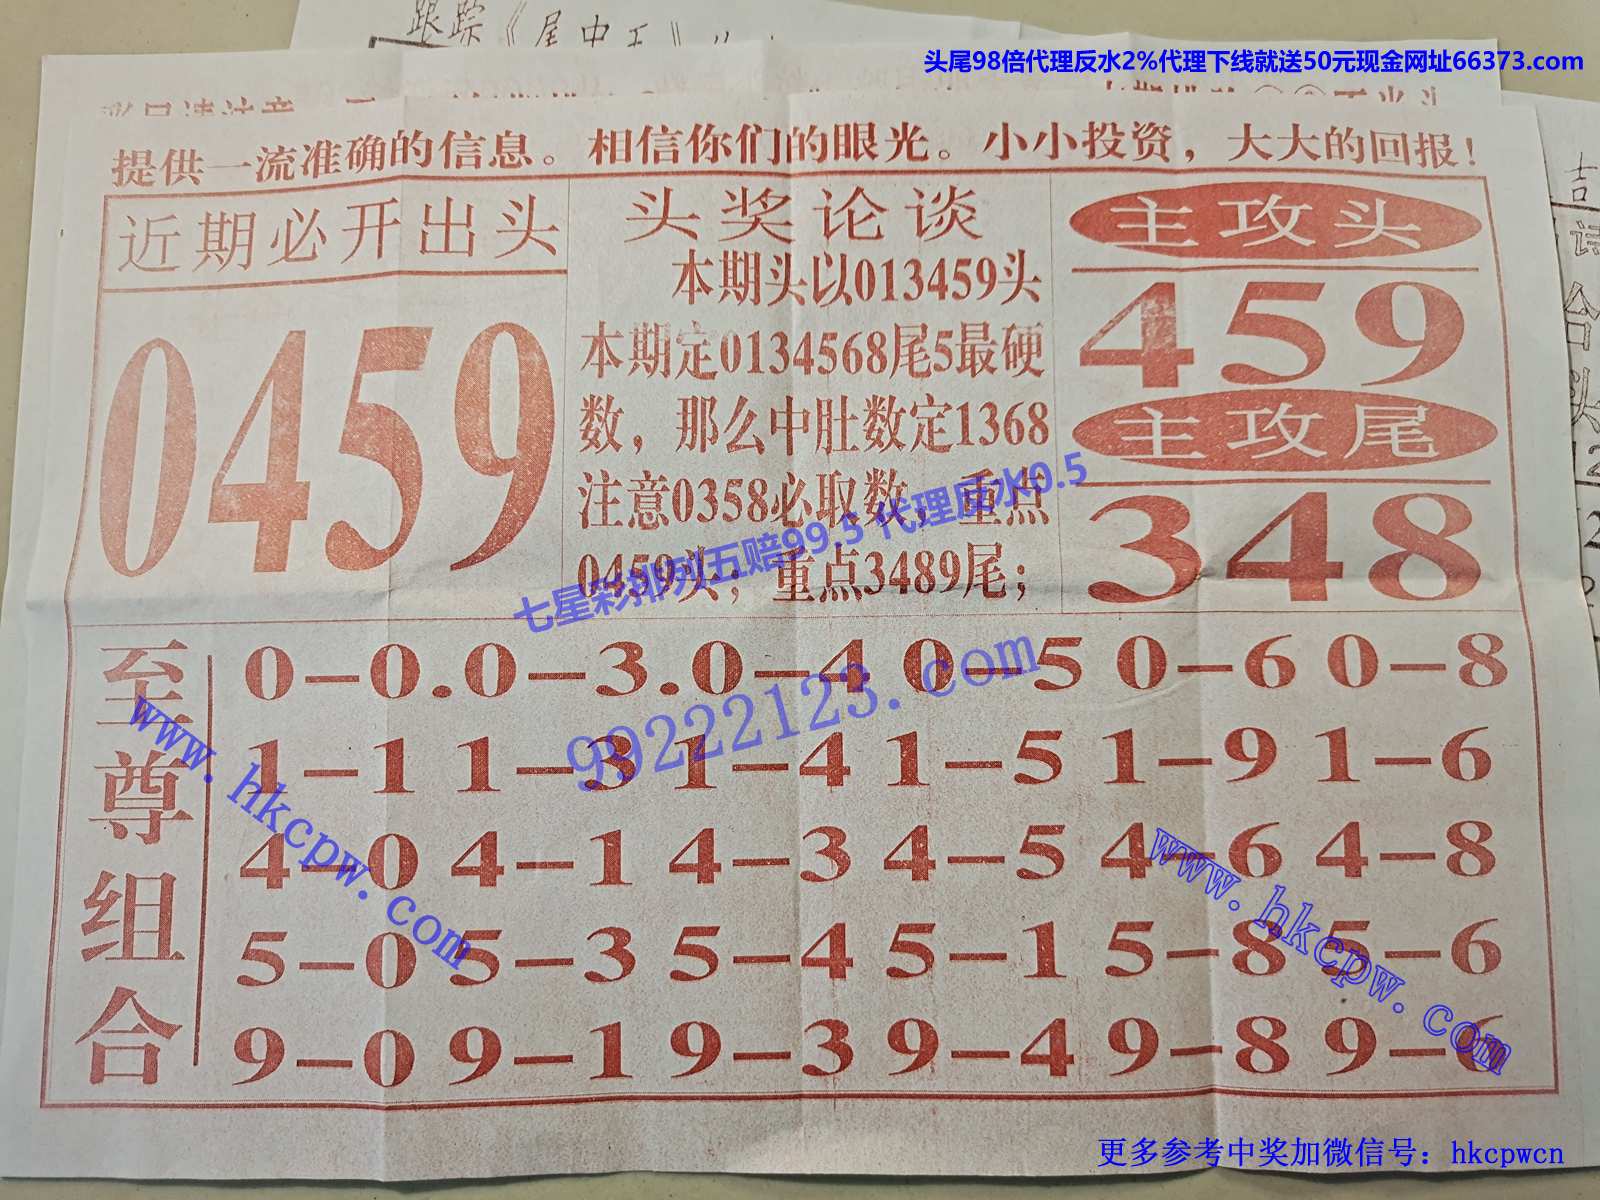 跟踪《尾中王》
头尾98倍代理反水2%代理下线就送50元现金网址66373.com
提供一流准确的信息。相信你们的眼光。小小投资，大大的回报！
近期必开出头
0459
头奖论谈
本期头以013459头
本期定0134568尾5最硬
数，那么中肚数定1368
注意0358必取数，重点
0459头；重点3489尾；
主攻头
459
主攻尾
348
七星彩排列五赔99.5 代理反水0.5
99222123.com
至尊组合
0-0.0-3.0-4 0-5 0-6 0-8
1-1 1-3 1-4 1-5 1-9 1-6
4-0 4-1 4-3 4-5 4-6 4-8
5-0 5-3 5-4 5-1 5-8 5-6
9-0 9-1 9-3 9-4 9-8 9-6
www.hkcpw.com
www.hkcpw.com
吉
合
头
更多参考中奖加微信号：hkcpwcn